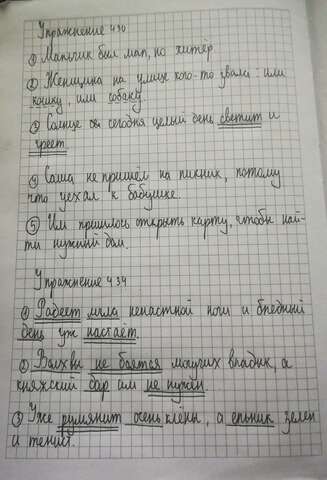 Упражнение 430
① Мальчик был мал, но хитёр
② Женщина на улице кого-то звала: или
кошку, или собаку.
③ Солнце сегодня целый день светит и
греет.
④ Саша не пришёл на пикник, потому
что уехал к бабушке.
⑤ Им пришлось открыть карту, чтобы най-
ти нужный дом.
Упражнение 434
① Редеет мгла ненастной ночи и бледный
день уж настаёт.
② Волхвы не боятся могучих владык, а
княжеский дар им не нужен.
③ Уже румянит осень клёны, а ельник зелен
и тенист.